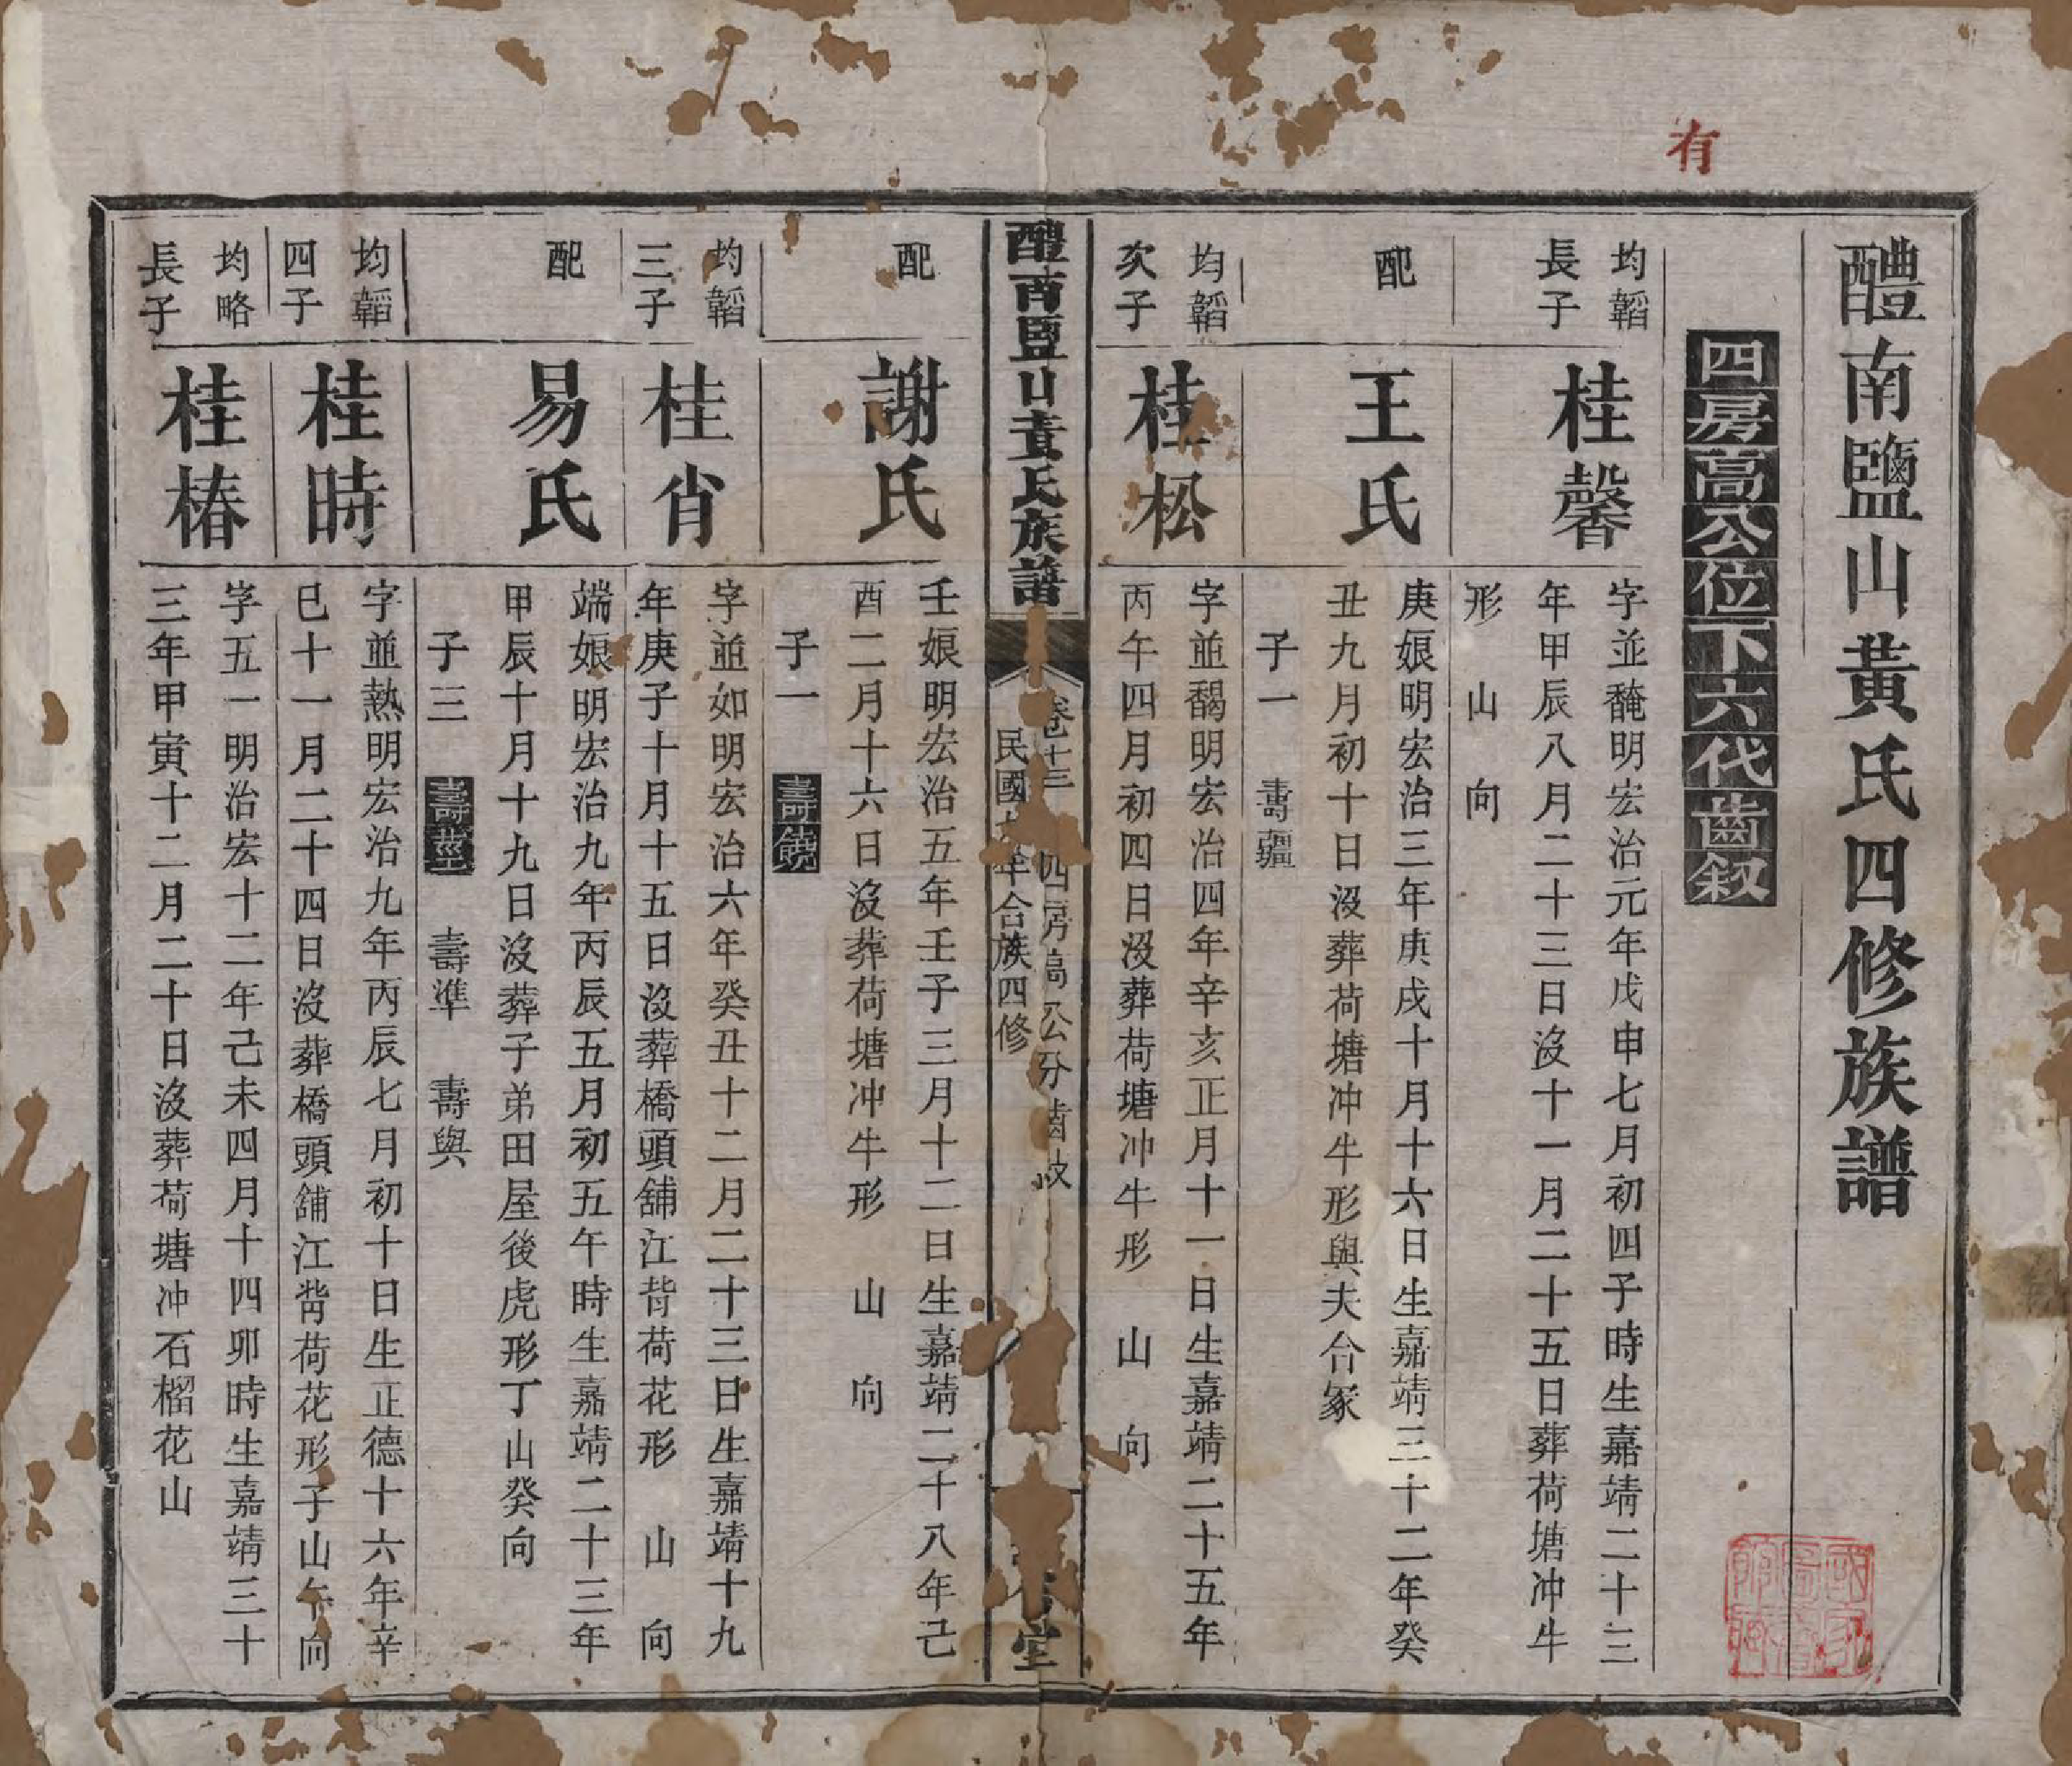 有
醴南鹽山黃氏四修族譜
四房高公位下六代齒叙
均韜長子
桂馨
字並馣明宏治元年戊申七月初四子時生嘉靖二十三
年甲辰八月二十三日沒十一月二十五日葬荷塘冲牛
形 山 向
配
王氏
庚娘明宏治三年庚戌十月十六日生嘉靖三十二年癸
丑九月初十日沒葬荷塘冲牛形與夫合冢
子一 壽疆
均韜次子
桂松
字並馤明宏治四年辛亥正月十一日生嘉靖二十五年
丙午四月初四日沒葬荷塘冲牛形 山 向
醴南鹽山黃氏族譜
卷十三 四房高公分齒
民國 年合族四修
堂
配
謝氏
壬娘明宏治五年壬子三月十二日生嘉靖二十八年己
酉二月十六日沒葬荷塘冲牛形 山 向
子一 壽饒
均韜三子
桂肖
字並如明宏治六年癸丑十二月二十三日生嘉靖十九
年庚子十月十五日沒葬橋頭舖江背荷花形 山 向
配
易氏
端娘明宏治九年丙辰五月初五午時生嘉靖二十三年
甲辰十月十九日沒葬子弟田屋後虎形丁山癸向
子三 壽 壽準 壽與
均韜四子
桂時
字並熱明宏治九年丙辰七月初十日生正德十六年辛
巳十一月二十四日沒葬橋頭舖江背荷花形子山午向
均略長子
桂椿
字五一明治宏十二年己未四月十四卯時生嘉靖三十
三年甲寅十二月二十日沒葬荷塘冲石榴花山